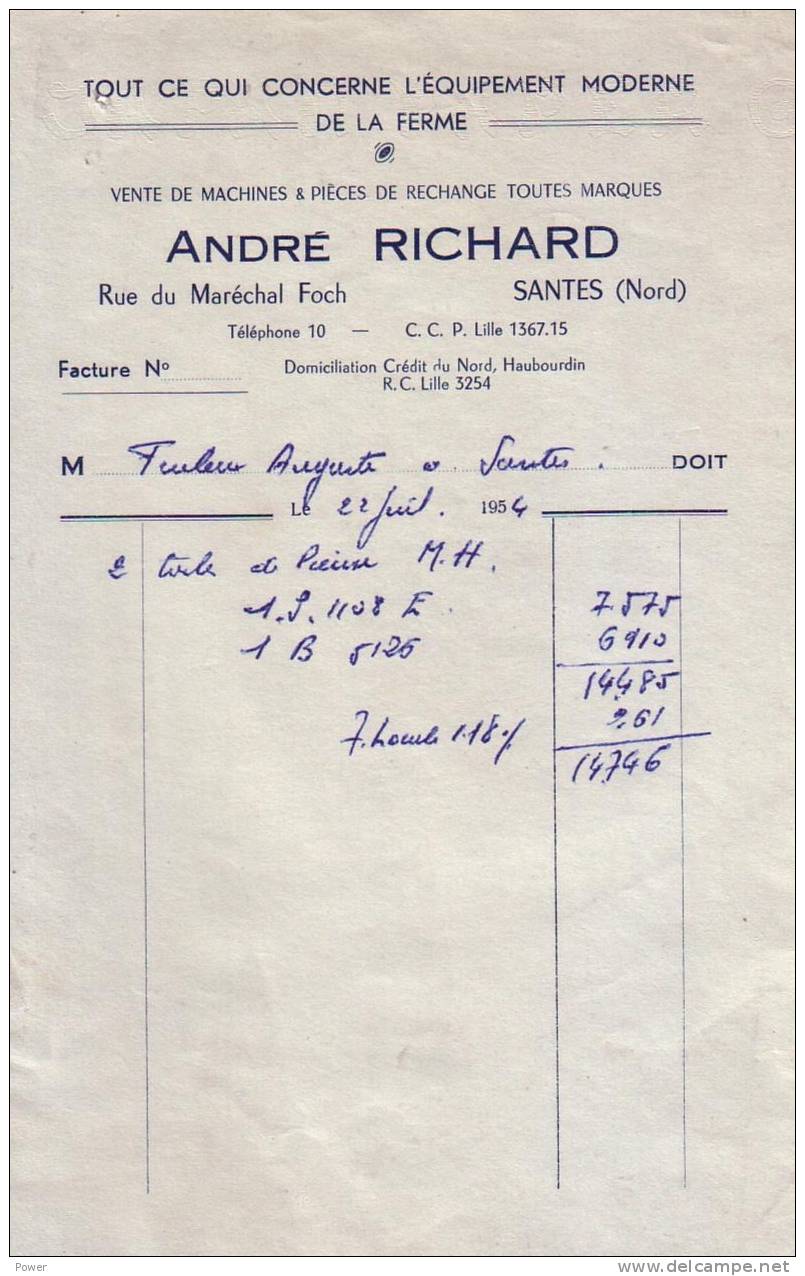 TOUT CE QUI CONCERNE L'ÉQUIPEMENT MODERNE
DE LA FERME
VENTE DE MACHINES & PIÈCES DE RECHANGE TOUTES MARQUES
ANDRÉ RICHARD
Rue du Maréchal Foch SANTES (Nord)
Téléphone 10 — C. C. P. Lille 1367.15
Facture No Domiciliation Crédit du Nord, Haubourdin
R. C. Lille 3254
M Auguste a Santes. DOIT
Le 22 Juil. 1954
2 M.H.
1.S. 1108 E. 7.575
1 B 5126 6910
14.485
261
T. Locale 1.18% 14.746
Power
delcampe.net